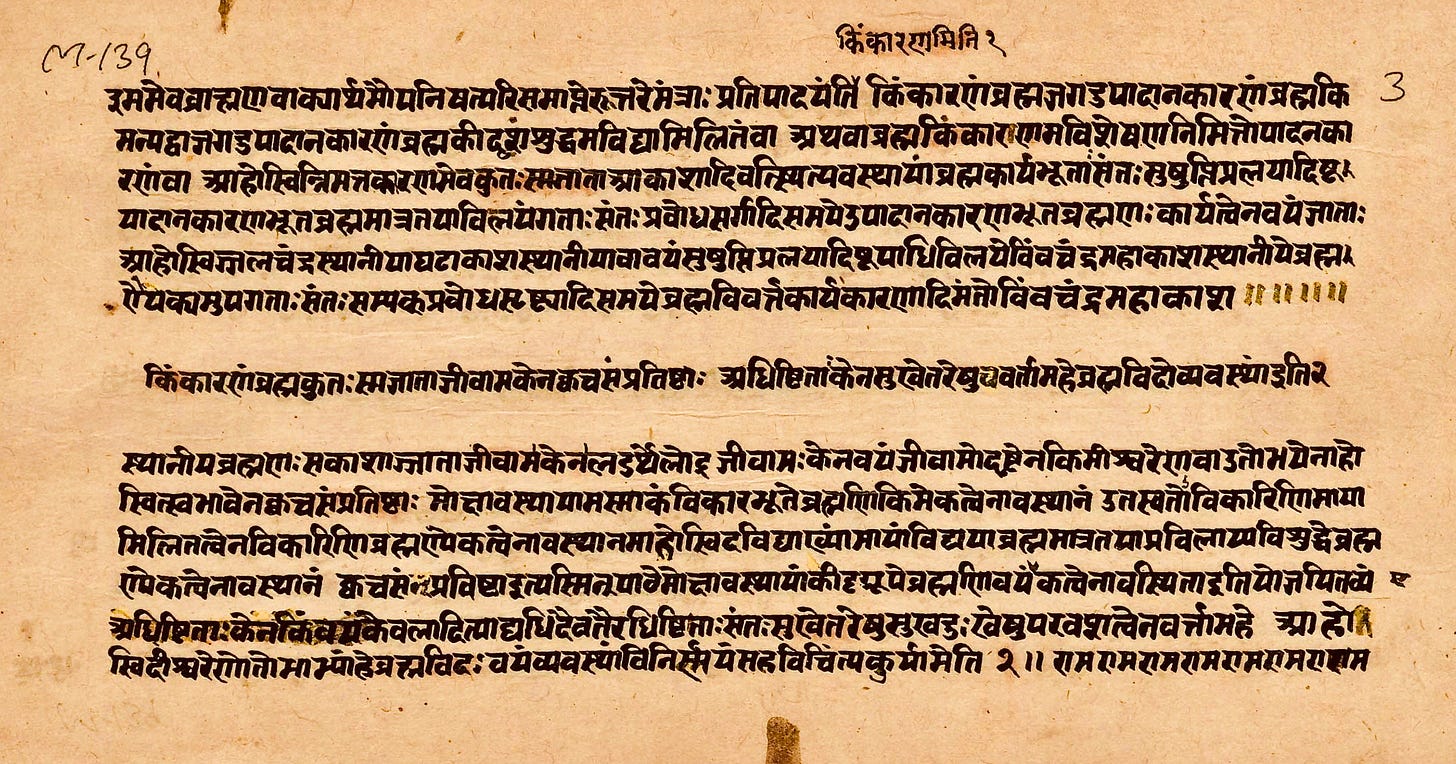 किंकारणमिति २
M-139
3
इममेवब्राह्मणवाक्यार्थमौपनिषत्परिसमाप्तेरुत्तरेमंत्राः प्रतिपादयंति किंकारणंब्रह्मजगदुपादानकारणंब्रह्मकि
मन्यद्वाजगदुपादानकारणंब्रह्मकीदृशंशुद्धमविद्यामिलितंवा अथवाब्रह्मकिंकारणमविशेषणनिमित्तोपादनका
रणंवा आहोस्विन्निमत्तकारणमेवकुतःस्मजाताआकाशादिवत्स्थित्यवस्थायांब्रह्मकार्यभूताःसंतःसुषुप्तिप्रलयादिषू
पादानकारणभूतब्रह्ममात्रतयाविलयंगताः संतः प्रबोधसर्गादिसमयेउपादानकारणभूतब्रह्मणः कार्यत्वेनवयंजाताः
आहोस्विज्जलचंद्रस्थानीयाघटाकाशस्थानीयावावयंसुषुप्तिप्रलयादिषूपाधिविलयेबिंबचंद्रमहाकाशस्थानीयेब्रह्म
णैयक्यमुपगताःसंतःसम्यक्प्रबोधसृष्ट्यादिसमयेब्रह्मविवर्त्तकार्यकारणादिमंतोबिंबचंद्रमहाकाश
किंकारणंब्रह्मकुतःस्मजाताजीवामकेनक्वचसंप्रतिष्ठाः अधिष्ठिताःकेनसुखेतरेषुववर्तामहेब्रह्मविदोव्यवस्थांइति२
स्थानीयब्रह्मणःसकाशाज्जाताजीवामकेनलडर्थेलोट् जीवामःकेनवयंजीवामोदृष्टेनकिमीश्वरेणवाउतोभयेनाहो
स्वित्स्वभावेनक्वचसंप्रतिष्ठाः मोक्षावस्थायामस्माकंविकारभूतेब्रह्मणिकिमेकत्वेनावस्थानं उतस्वतोविकारिणिमाया
मिलितत्वेनविकारिणिब्रह्मण्येकत्वेनावस्थानमाहोस्विदविद्याख्यांमायांविद्ययाब्रह्ममात्रतयाप्रविलाप्यविशुद्धेब्रह्म
ण्येकत्वेनावस्थानं क्वचसंप्रविष्टाइत्यस्मिन्पाठेमोक्षावस्थायांकीदृग्रूपेब्रह्मणिवयंकत्वेनावस्थिताइतियोजयितव्यं
अधिष्ठिताःकेनकिंवयंकेवलादित्याद्यधिदैवतैरधिष्ठिताःसंतःसुखेतरेषुसुखदुःखेषुपरवशत्वेनवर्त्तामहे आहो
स्विदीश्वरेणोतोभाभ्यांहेब्रह्मविदः वयंव्यवस्थांविनिर्म्मयंसहविचिंत्यकुर्यामेति २॥ रामरामरामरामरामरामरामराम